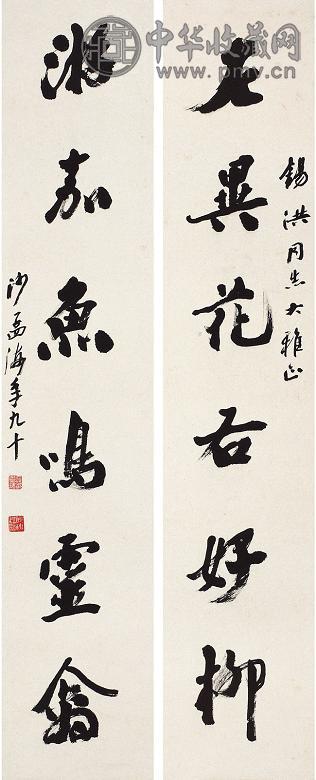 中华收藏网
www.pmv.cn
錫洪同志大雅正
左異花右好柳
游嘉魚鳴靈禽
沙孟海年九十